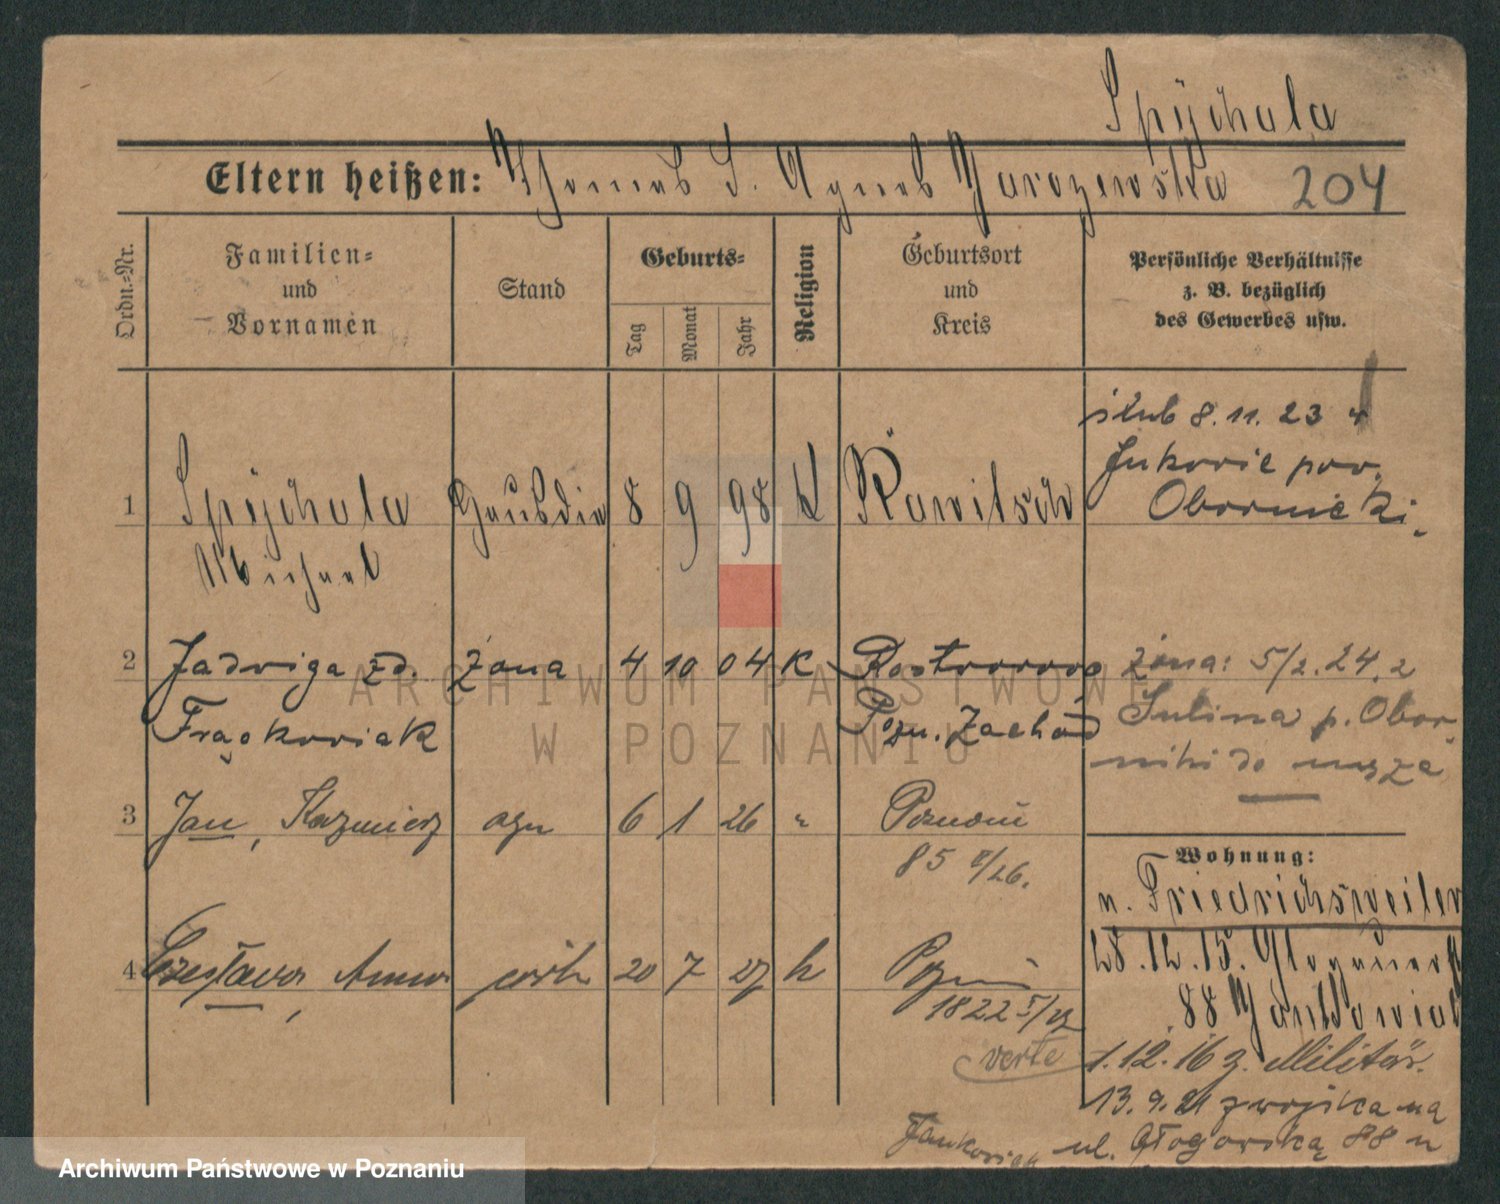 Spÿchala
Eltern heißen: Thomas S. Agnes Jarozewska 204
Ordn.=Nr.
Familien=
und
Vornamen
Stand
Geburts=
Tag
Monat
Jahr
Religion
Geburtsort
und
Kreis
Persönliche Verhältnisse
z. B. bezüglich
des Gewerbes usw.
1 Spÿchala 8 9 98 K Rawitsch
Michael
ślub 8. 11. 23 w
pow.
Oborniki.
2 Jadwiga zd. żona 4 10 04 K Rostworowo
Frąckowiak Pozn. Zachód
żona: 5/2. 24. z
p. Obor-
niki do męża
3 Jan, Kazimierz syn 6 1 26 " Poznań
85 /26.
4 Czesława, Anna córka 20 7 27 k Pozn
1822 /27
verte
Wohnung:
n. Friedrichsweiler
28. 12. 15. Glogauerst
88 Jankowiak
1. 12. 16 z. Militär.
13. 9. 21 z wojska na
ul. Głogowską 88 u
Jankowiak
ARCHIWUM PAŃSTWOWE
W POZNANIU
Archiwum Państwowe w Poznaniu